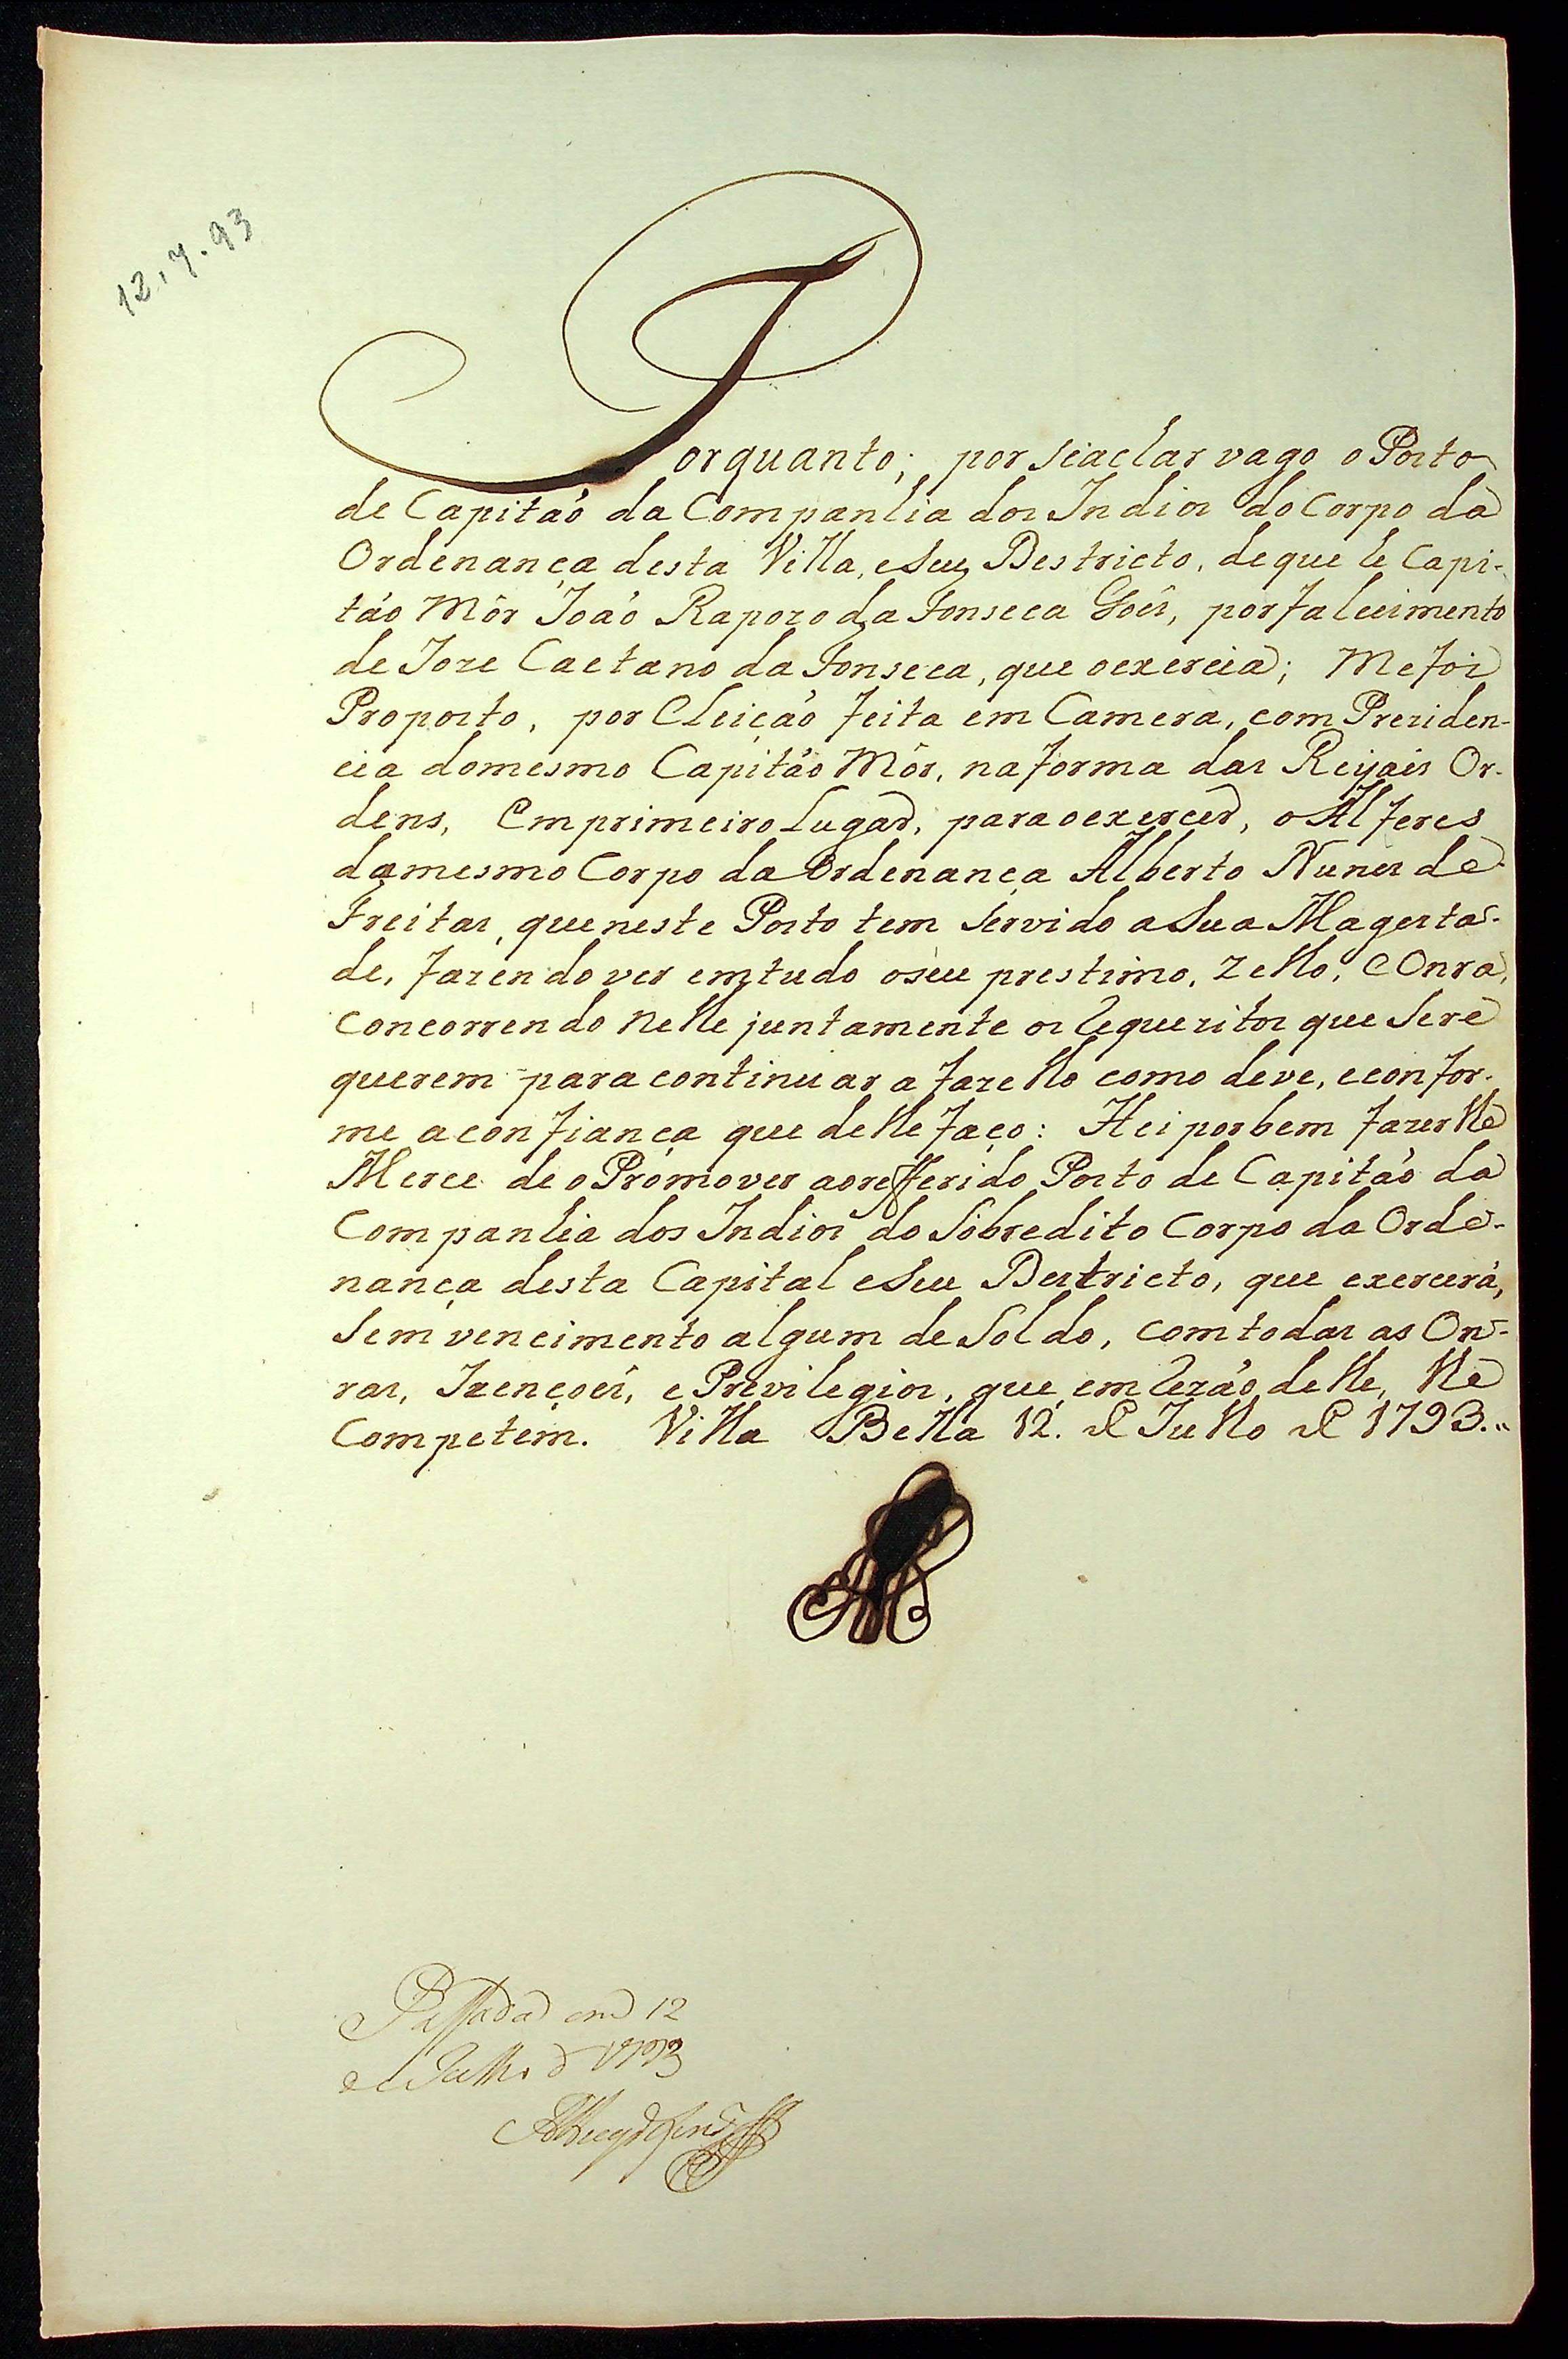 12.7.93
Porquanto; por seachar vago o Posto
de Capitaõ da Companhia dos Indios do Corpo da
Ordenança desta Villa, eseu Destricto, de que he Capi-
taõ Môr Joaõ Rapozo da Fonseca Goês, por falecimento
de Joze Caetano da Fonseca, que oexercia; Me foi
Proposto, por Eleiçaõ feita em Camera, com Preziden-
cia domesmo Capitaõ Môr, na forma das Reyais Or-
dens, Em primeiro Lugar, para oexercer, o Alferes
domesmo Corpo da Ordenança Alberto Nunes de
Freitas, que neste Posto tem servido a Sua Magesta-
de, fazendo ver em tudo oseu prestimo, zello, e Onra,
concorrendo nelle juntamente os requezitos que Sere
querem para continuar a fazello como deve, econfor-
me aconfiança que delle faço: Hei por bem fazerlhe
Merce de o Promover aorefferido Posto de Capitaõ da
Companhia dos Indios do Sobredito Corpo da Orde-
nança desta Capital eseu Destricto, que exercerá,
Sem vencimento algum de Soldo, com todas as On-
ras, Izençoês, e Previlegios, que, em rezaõ delle, lhe
Competem. Villa Bella 12. de Julho de 1793.„
Passada em 12
de Julho d 1793